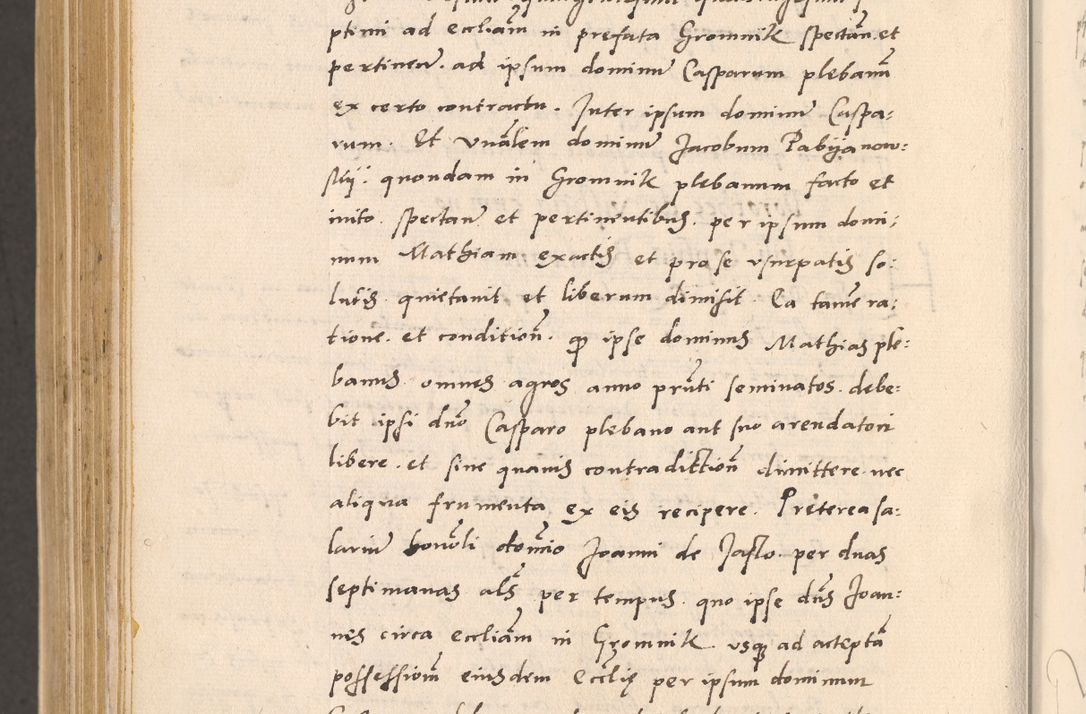 ptimi ad eccliam in prefata Gromnik spectan. et
pertinen. ad ipsum dominum Casparum plebanum
ex certo contractu. Inter ipsum dominum Caspa-
rum. Et vnalem dominum Jacobum Pabijanow-
skij. quondam in Gromnik plebanum facto et
inito. spectan et pertinentibus. per ipsum domi-
num Mathiam exactis et pro se vsurpatis so-
lutis. quietauit et liberum dimisit. Ea tamen ra-
tione. et condition. quod ipse dominus Mathias ple-
banus. omnes agros anno prnti seminatos. debe-
bit ipsi dno Casparo plebano aut suo arendatori
libere. et sine quauis contradiction dimittere. nec
aliqua frumenta ex eis recipere. Preterea sa-
larium honorabili domino Joanni de Jaslo. per duas
septimanas als per tempus. quo ipse dns Joan-
nes circa eccliam in Gromnik. vsque ad acceptam
possessionem eiusdem Ecclie per ipsum dominum